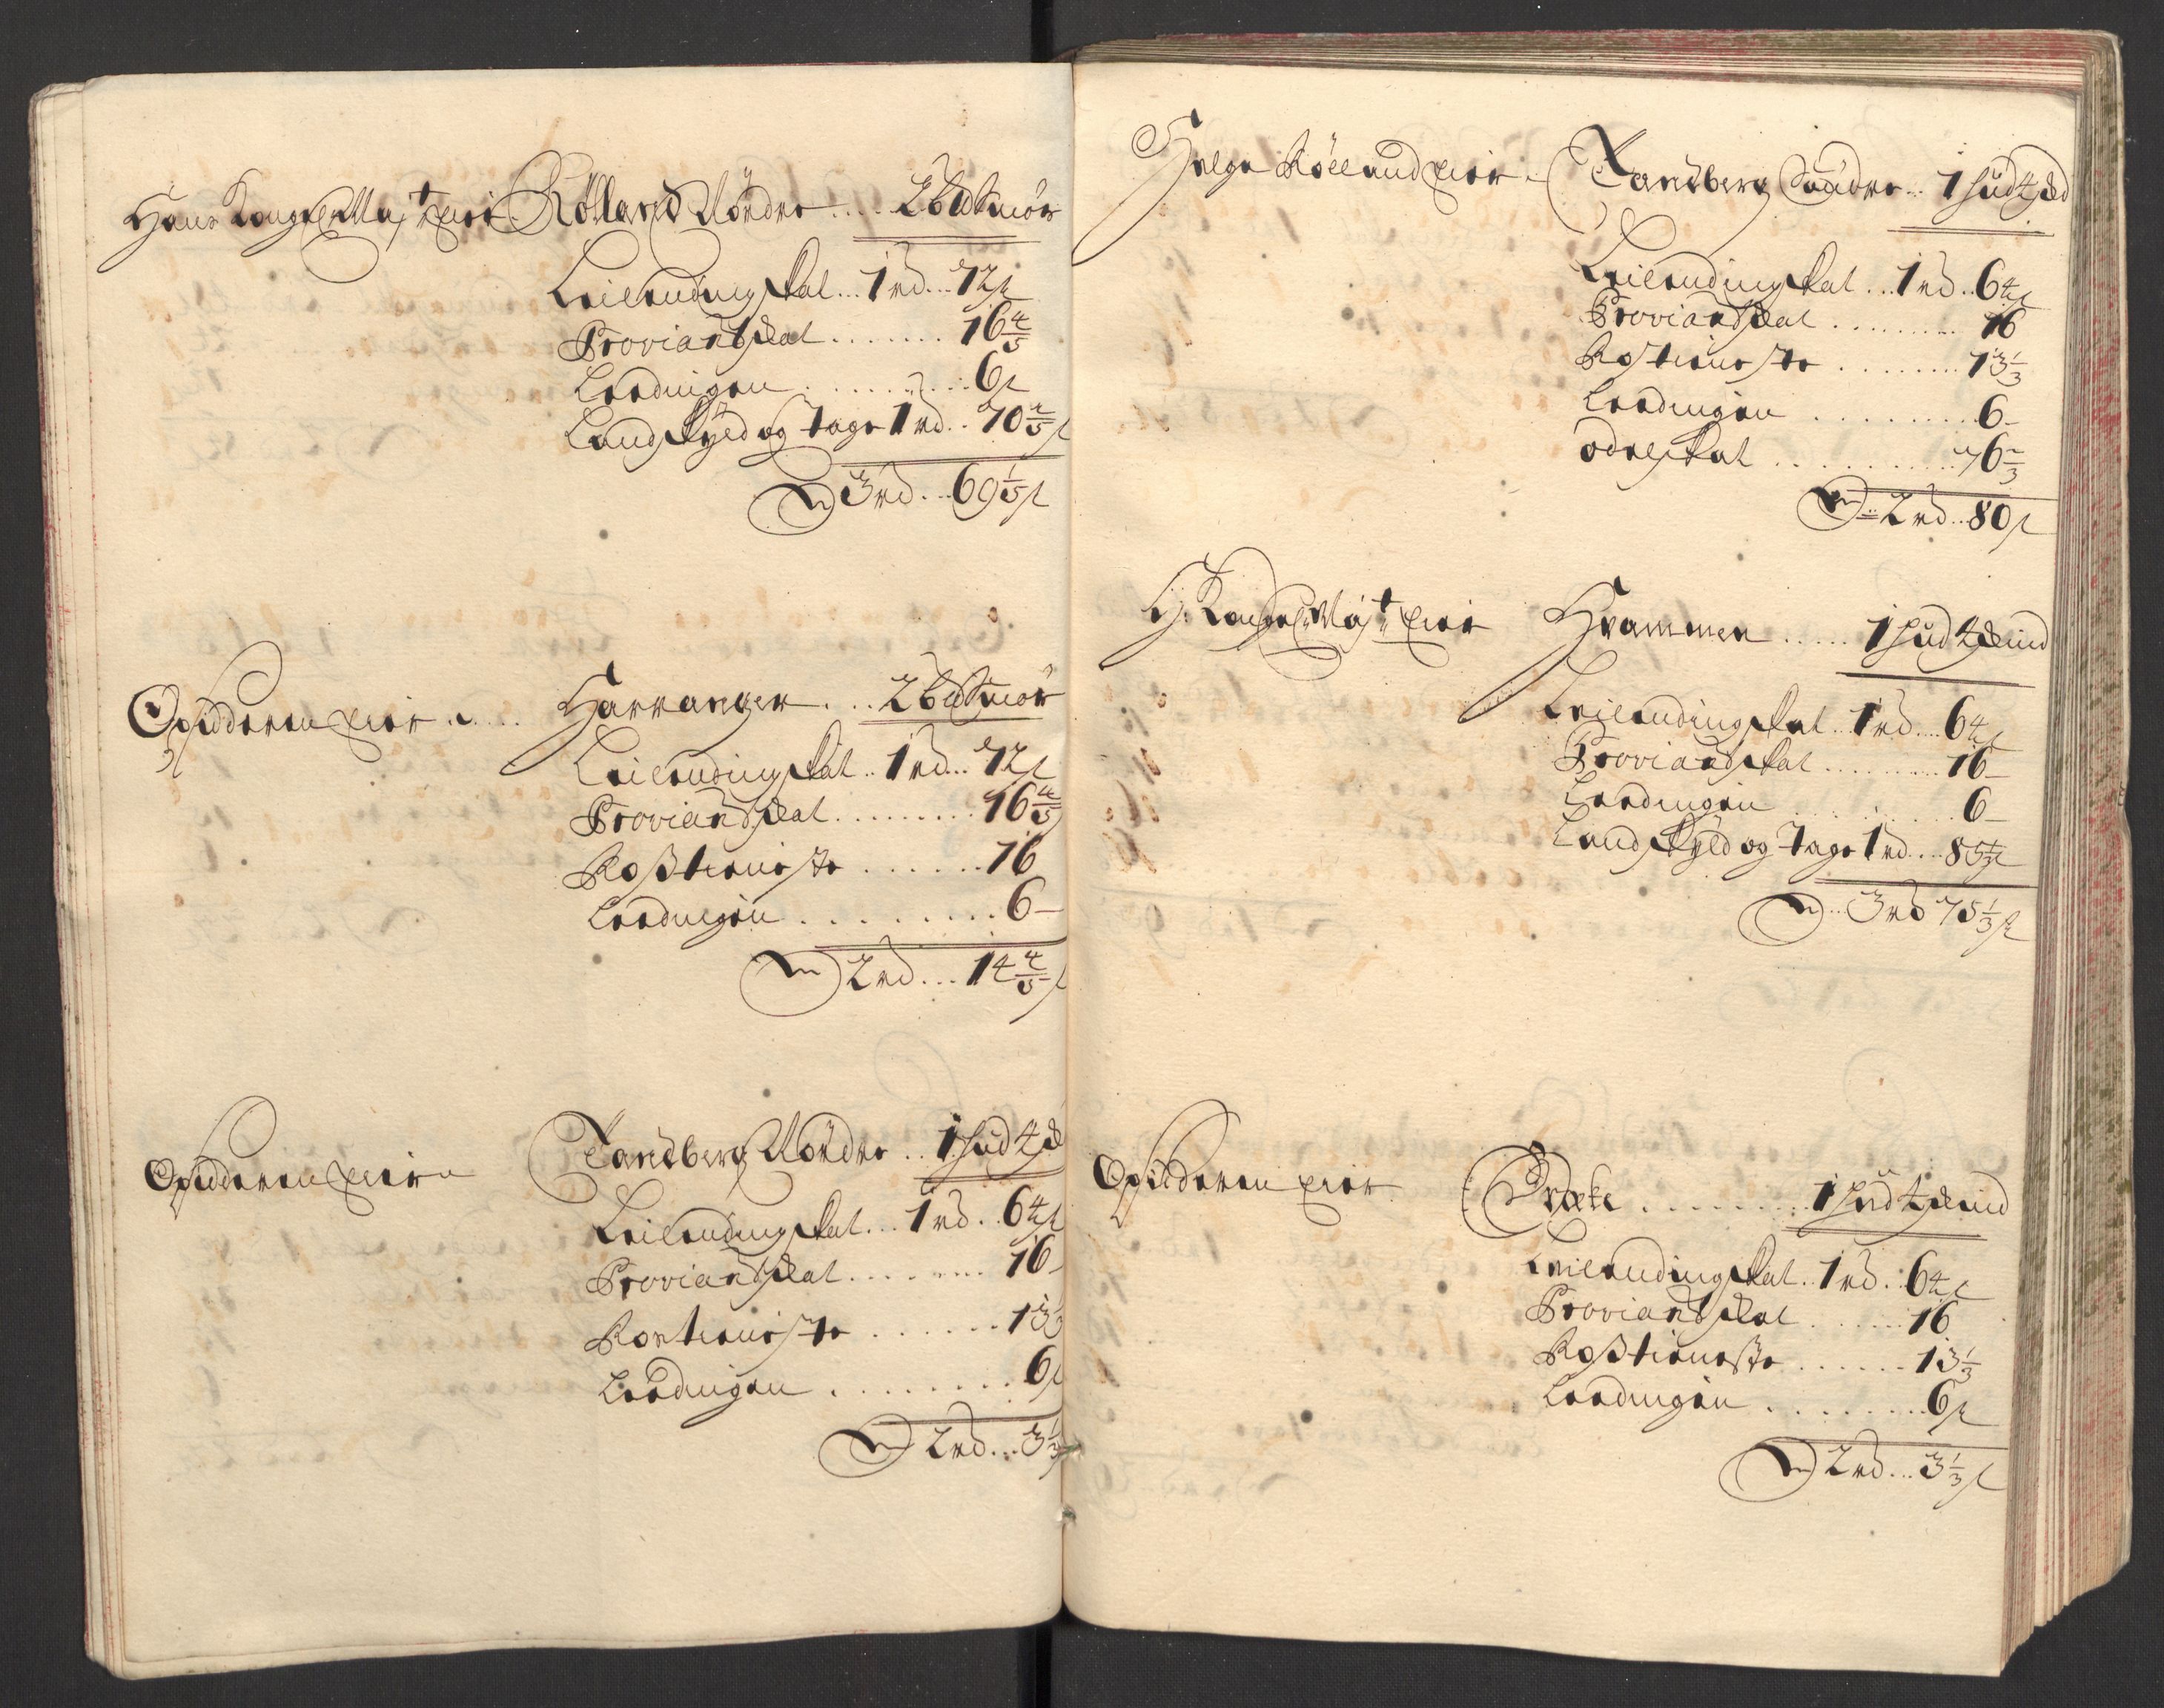 Hans Kongel: Maj:t eier Rölland Nördre .... 2 b d Smör
Leilendingskat ... 1 rd ... 12 s
Proviantskat ....... 16 4/5
Leedingen ......... 6 s
Landskyld og tage 1 rd .. 70 2/5 s
3 rd ... 69 1/5 s
Opsidderen eier ..... Harranger ... 2 b d Smör
Leilendingskat .. 1 rd ... 12 s
Proviantskat ......... 16 4/5
Rosstieniste ...... 76
Leedingen ......... 6 -
2 rd ... 14 4/5 s
Opsidderen eier Tandberg Nördre .. 1 hud
Leilendingskat ... 1 rd .. 64 s
Proviantskat ........ 16 -
Rostieniste ...... 13 1/3
Leedingen ......... 6 s
2 rd ... 3 1/3
Helge Rölland eier. Tandberg Söndre .. 1 hud
Leilendingskat ... 1 rd .. 64 s
Proviantskat ......... 16
Rostieniste ........ 13 1/3
Leedingen ......... 6 -
odelskat .......... 76 2/3
2 rd .. 80 s
H: Kongel: Maj:t eier Hvammen ..... 1 hud
Leilendingskat .. 1 rd ... 64 s
Proviandskat ........ 16 -
Leedingen ......... 6 -
Landskyld og tage 1 rd ... 85 1/3 s
3 rd 75 1/3 s
Opsidderen eier Bræke ........ 1 hud
Leilendingskat .. 1 rd .. 64 s
Proviantskat ...... 16
Rosstieneste ...... 13 1/3
Leedingen ....... 6 s
2 rd ... 3 1/3 s